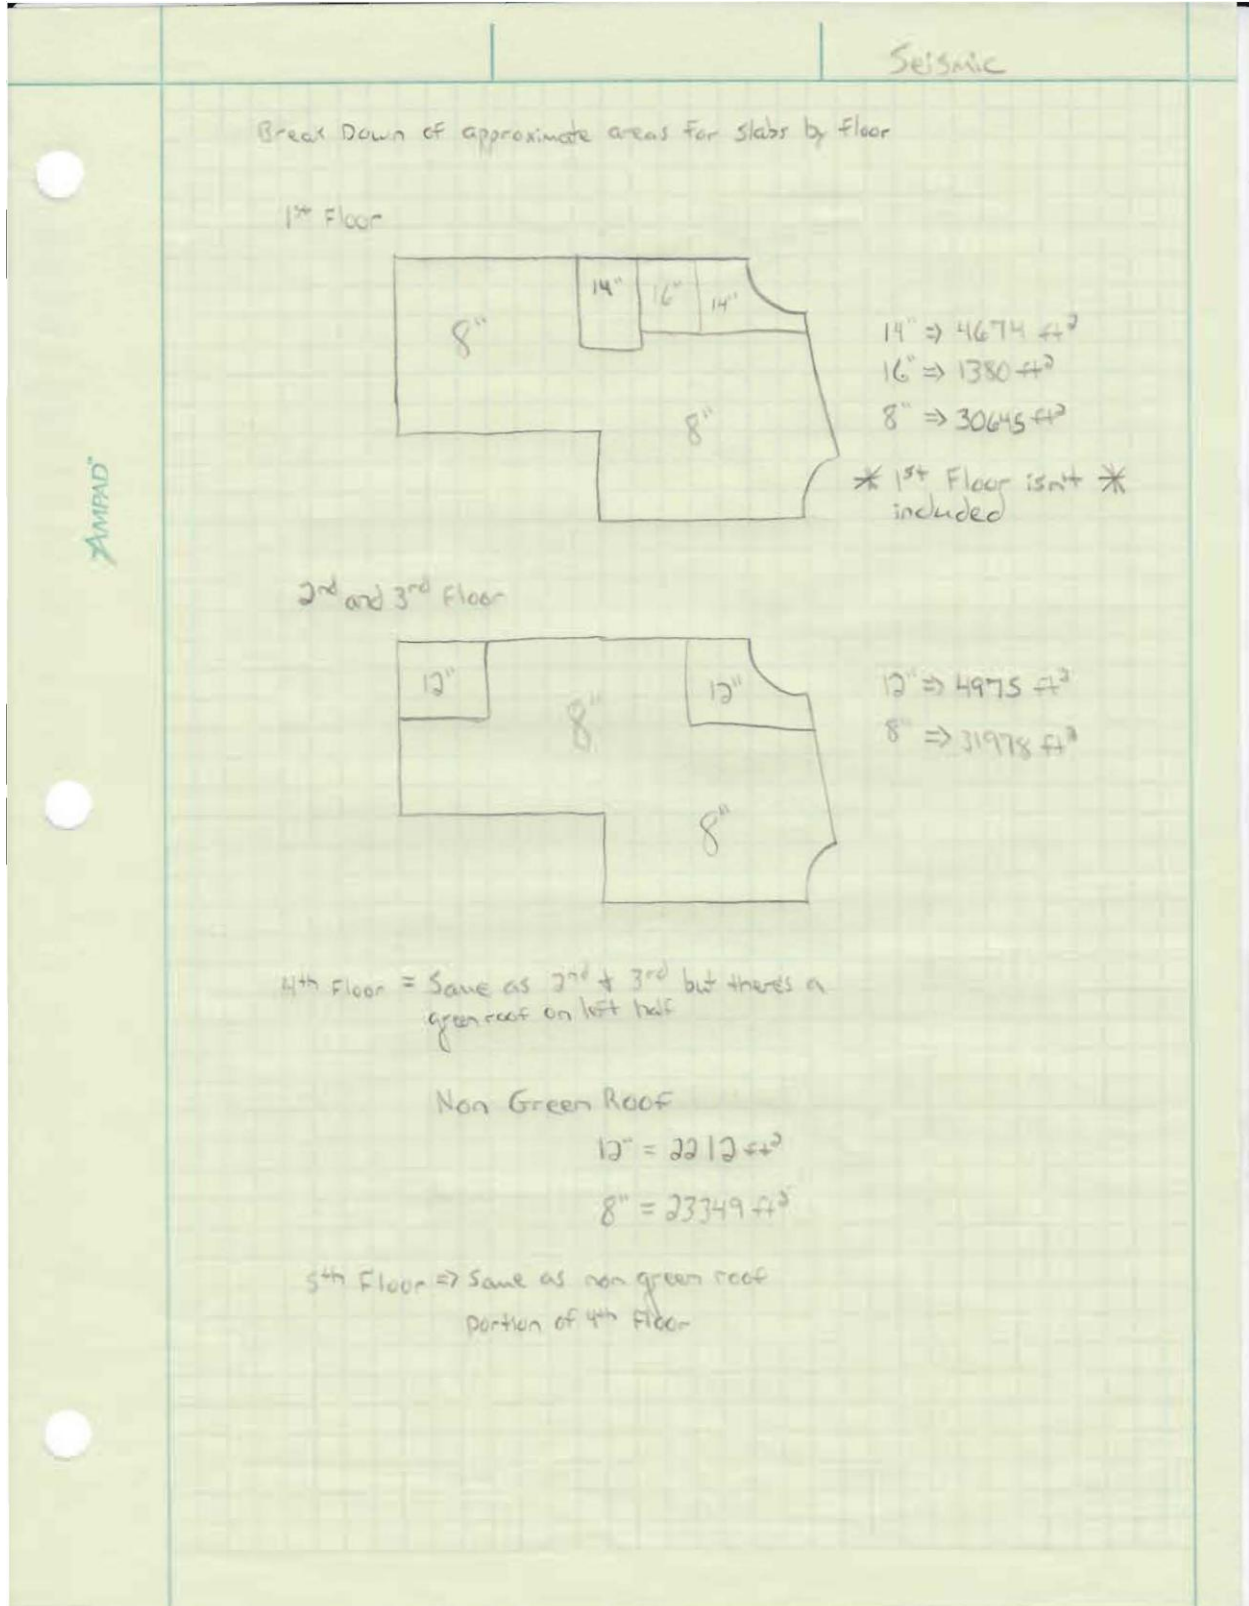 Seismic
Break Down of approximate areas for slabs by floor
1st Floor
14"
16"
14"
8"
8"
14" => 4674 ft²
16" => 1380 ft²
8" => 30645 ft²
* 1st Floor isn't *
included
AMPAD™
2nd and 3rd Floor
12"
12"
8"
8"
12" => 4975 ft²
8" => 31978 ft²
4th Floor = Same as 2nd & 3rd but there's a
green roof on left half
Non Green Roof
12" = 2212 ft²
8" = 23349 ft²
5th Floor => Same as non green roof
portion of 4th Floor